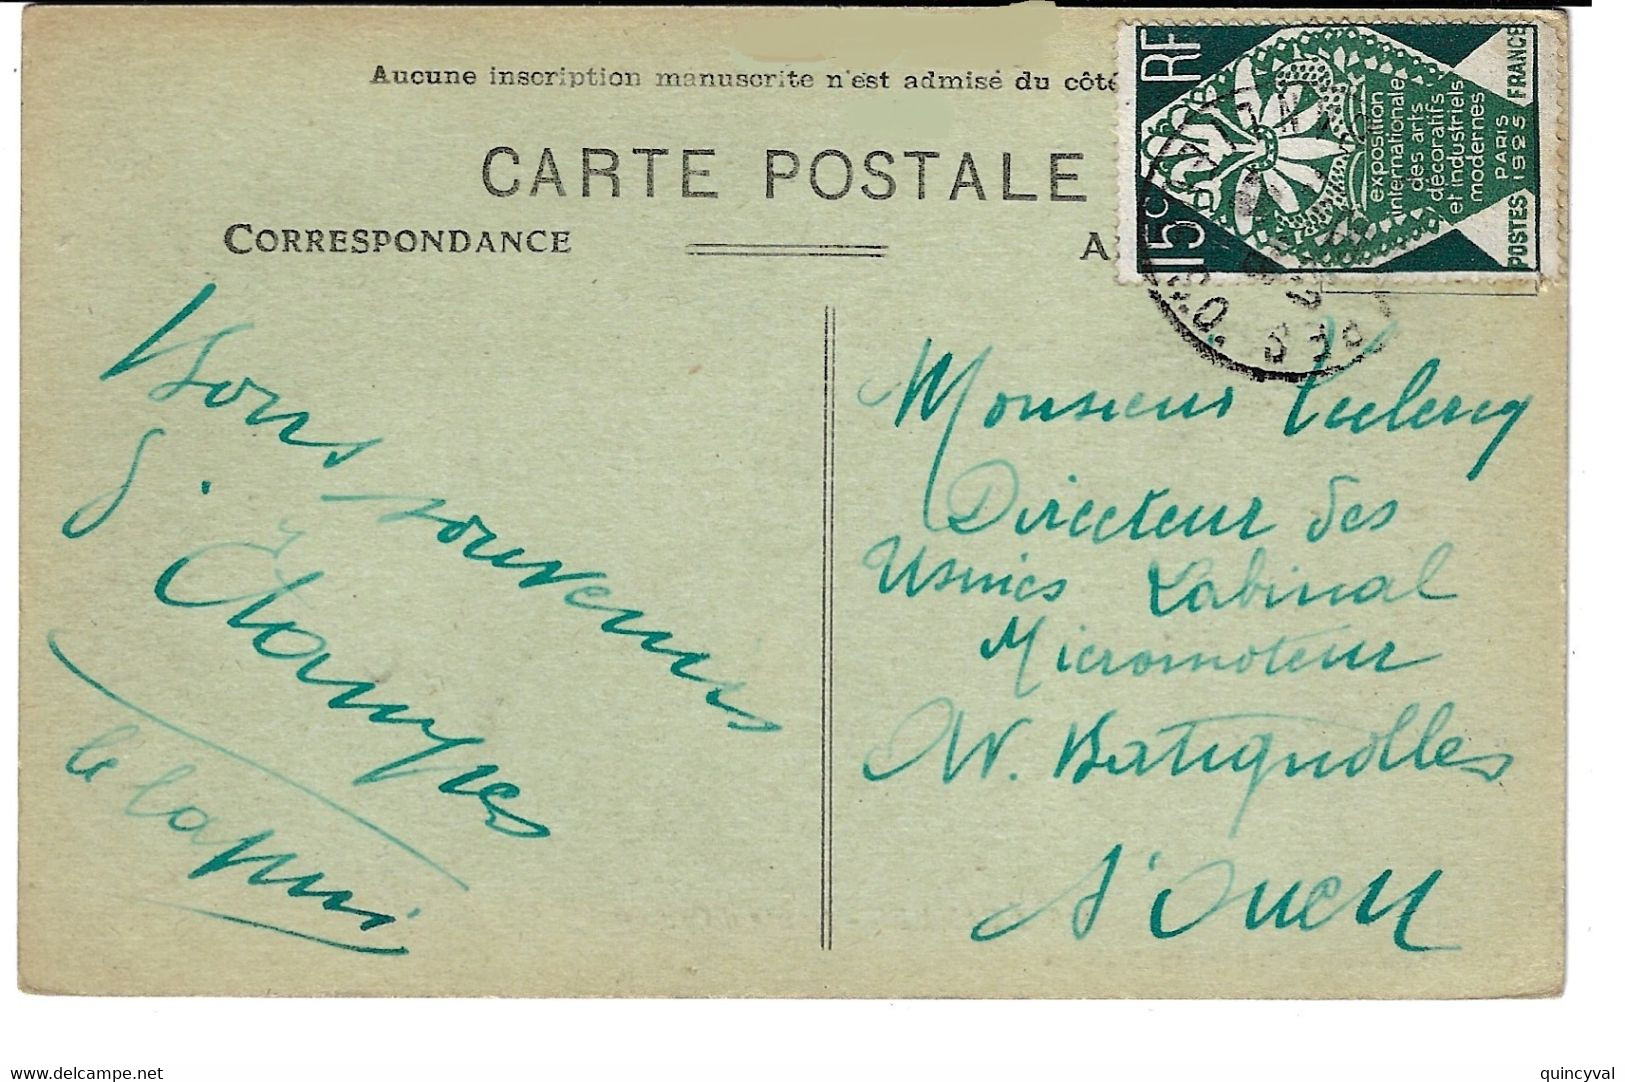 Aucune inscription manuscrite n'est admise du côté
CARTE POSTALE
CORRESPONDANCE
A
RF
15c
exposition
internationale
des arts
décoratifs
et industriels
modernes
PARIS
1925
POSTES FRANCE
Bons souvenirs
d'Étampes
le lapin
Monsieur Leclercq
Directeur des
Usines Labinal
Micromoteur
Av. Batignolles
St Ouen
delcampe.net
quincyval